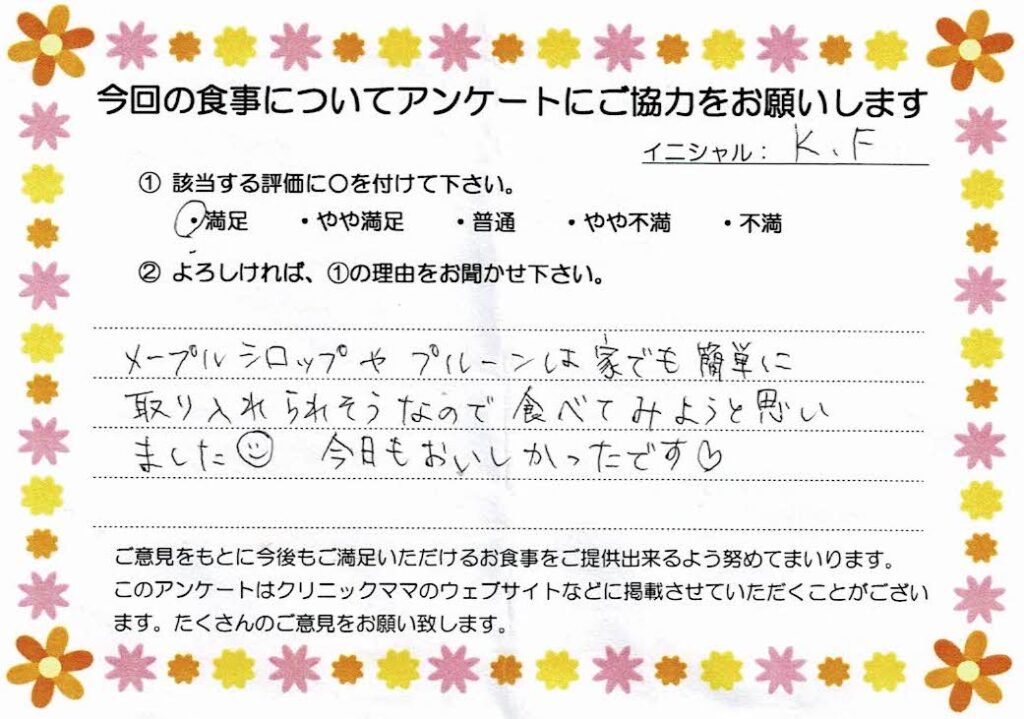 今回の食事についてアンケートにご協力をお願いします
イニシャル: K、F
① 該当する評価に〇を付けて下さい。
・満足 ・やや満足 ・普通 ・やや不満 ・不満
② よろしければ、①の理由をお聞かせ下さい。
メープルシロップや プルーンは 家でも 簡単に
取り入れられそうなので 食べてみようと思い
ました☺ 今日もおいしかったです♡
ご意見をもとに今後もご満足いただけるお食事をご提供出来るよう努めてまいります。
このアンケートはクリニックママのウェブサイトなどに掲載させていただくことがござい
ます。たくさんのご意見をお願い致します。